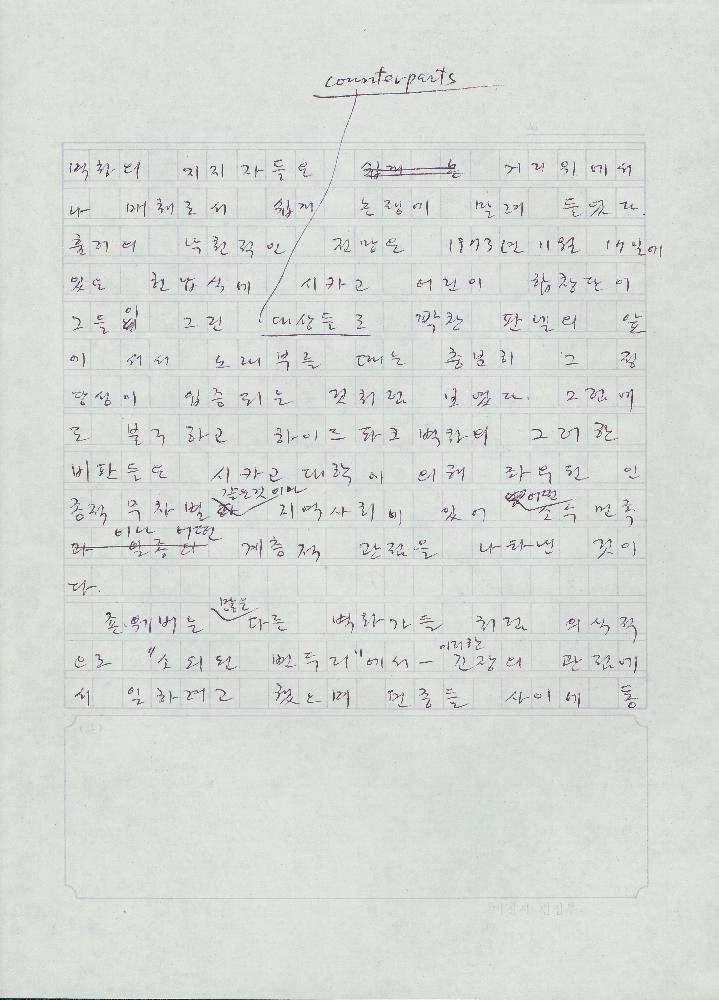 counterparts
벽화의 지지자들은 쉽게 논 거리위에서
나 매체로서 쉽게 논쟁에 말려 들었다.
흄거의 낙천적인 전망은 1973년 11월 17일에
있은 헌납식에 시카고 어린이 합창단이
그들이 그린 대상들로 꽉찬 판넬의 앞
에 서서 노래부를 때는 충분히 그 정
당성이 입증되는 것처럼 보였다. 그럼에
도 불구하고 하이드파크 벽화의 그러한
비판들은 시카고 대학에 의해 좌우된 인
같은것이나 어떤
종적 무차별 지역사회에 있어 소수민족
이나 어떤
과 일종의 계층적 관점을 나타낸 것이
다.
많은
존.웨버는 다른 벽화가들 처럼 의식적
이러한
으로 "소외된 변두리"에서 — 긴장의 관점에
서 일하려고 했으며 민중들 사이에 통